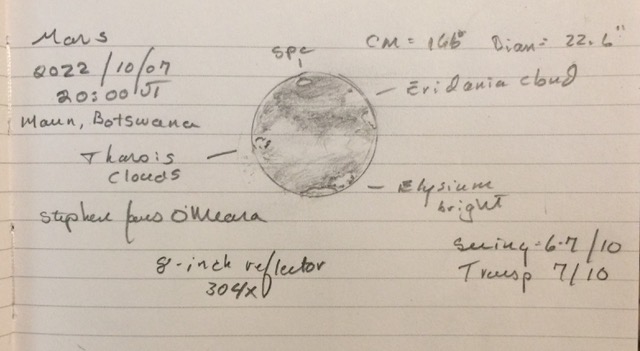 Mars
2022/10/07
20:00 UT
Maun, Botswana
SPC
CM = 166° Diam = 22.6"
Eridania cloud
Tharsis
clouds
Elysium
bright
Stephen James O'Meara
8-inch reflector
304x
Seeing - 6-7/10
Transp 7/10